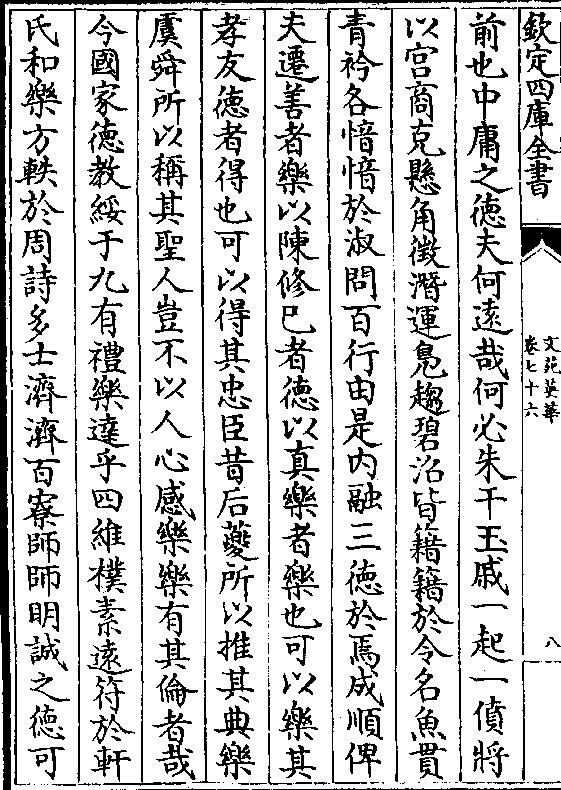 欽定四庫全書
文苑英華
卷七十六
八
前也中庸之德夫何遠哉何必朱干玉戚一起一僨將
以宫商克懸角徵潛運鳬趨碧沼皆籍籍於令名魚貫
青衿各愔愔於淑問百行由是内融三德於焉成順俾
夫遷善者樂以陳修已者德以真樂者樂也可以樂其
孝友德者得也可以得其忠臣昔后夔所以推其典樂
虞舜所以稱其聖人豈不以人心感樂樂有其倫者哉
今國家德教綏于九有禮樂達乎四維樸素遠符於軒
氏和樂方軼於周詩多士濟濟百寮師師明誠之德可